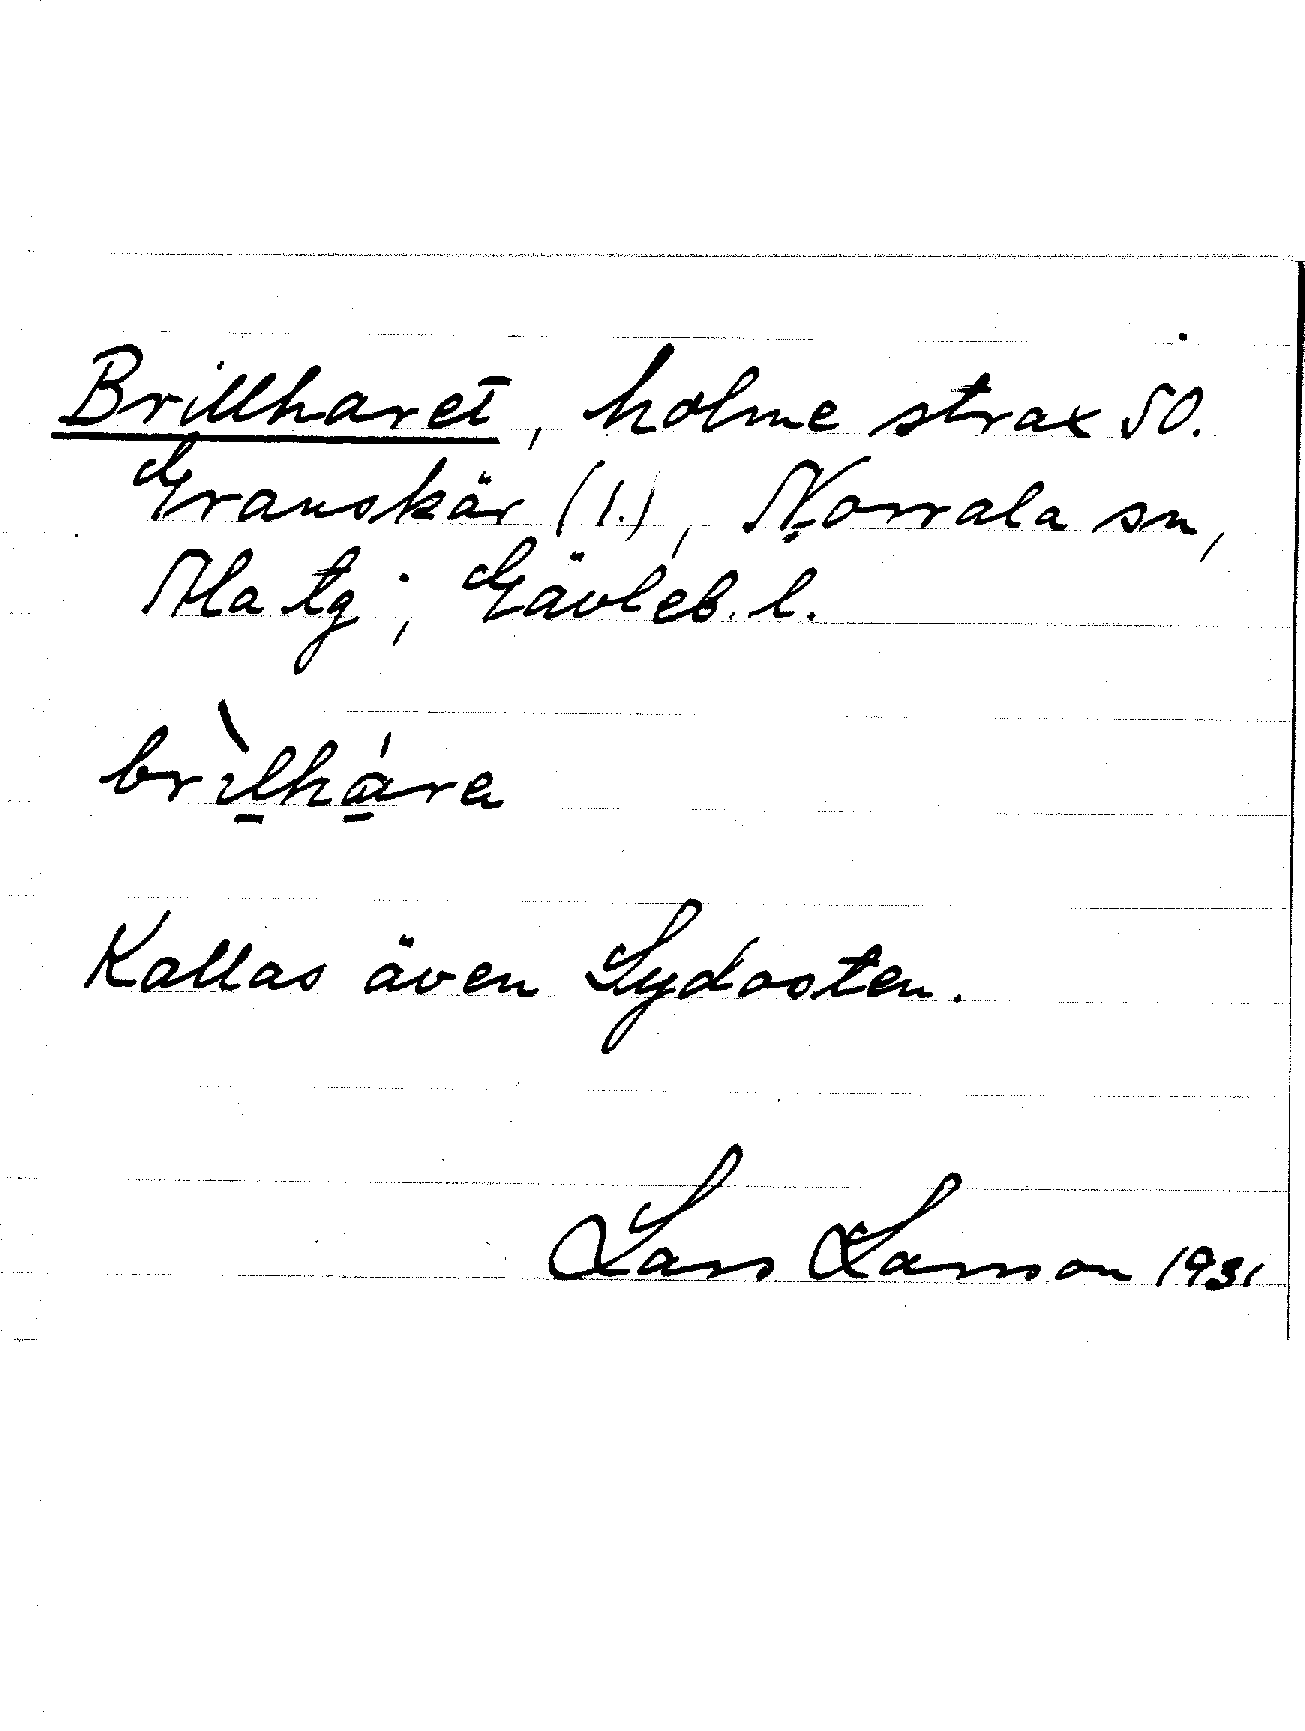 Brillharet, holme strax SO.
Granskär (1.), Norrala sn,
Ala tg; Gävleb. l.
brìlhára
Kallas även Sydosten.
Lars Larsson 1931